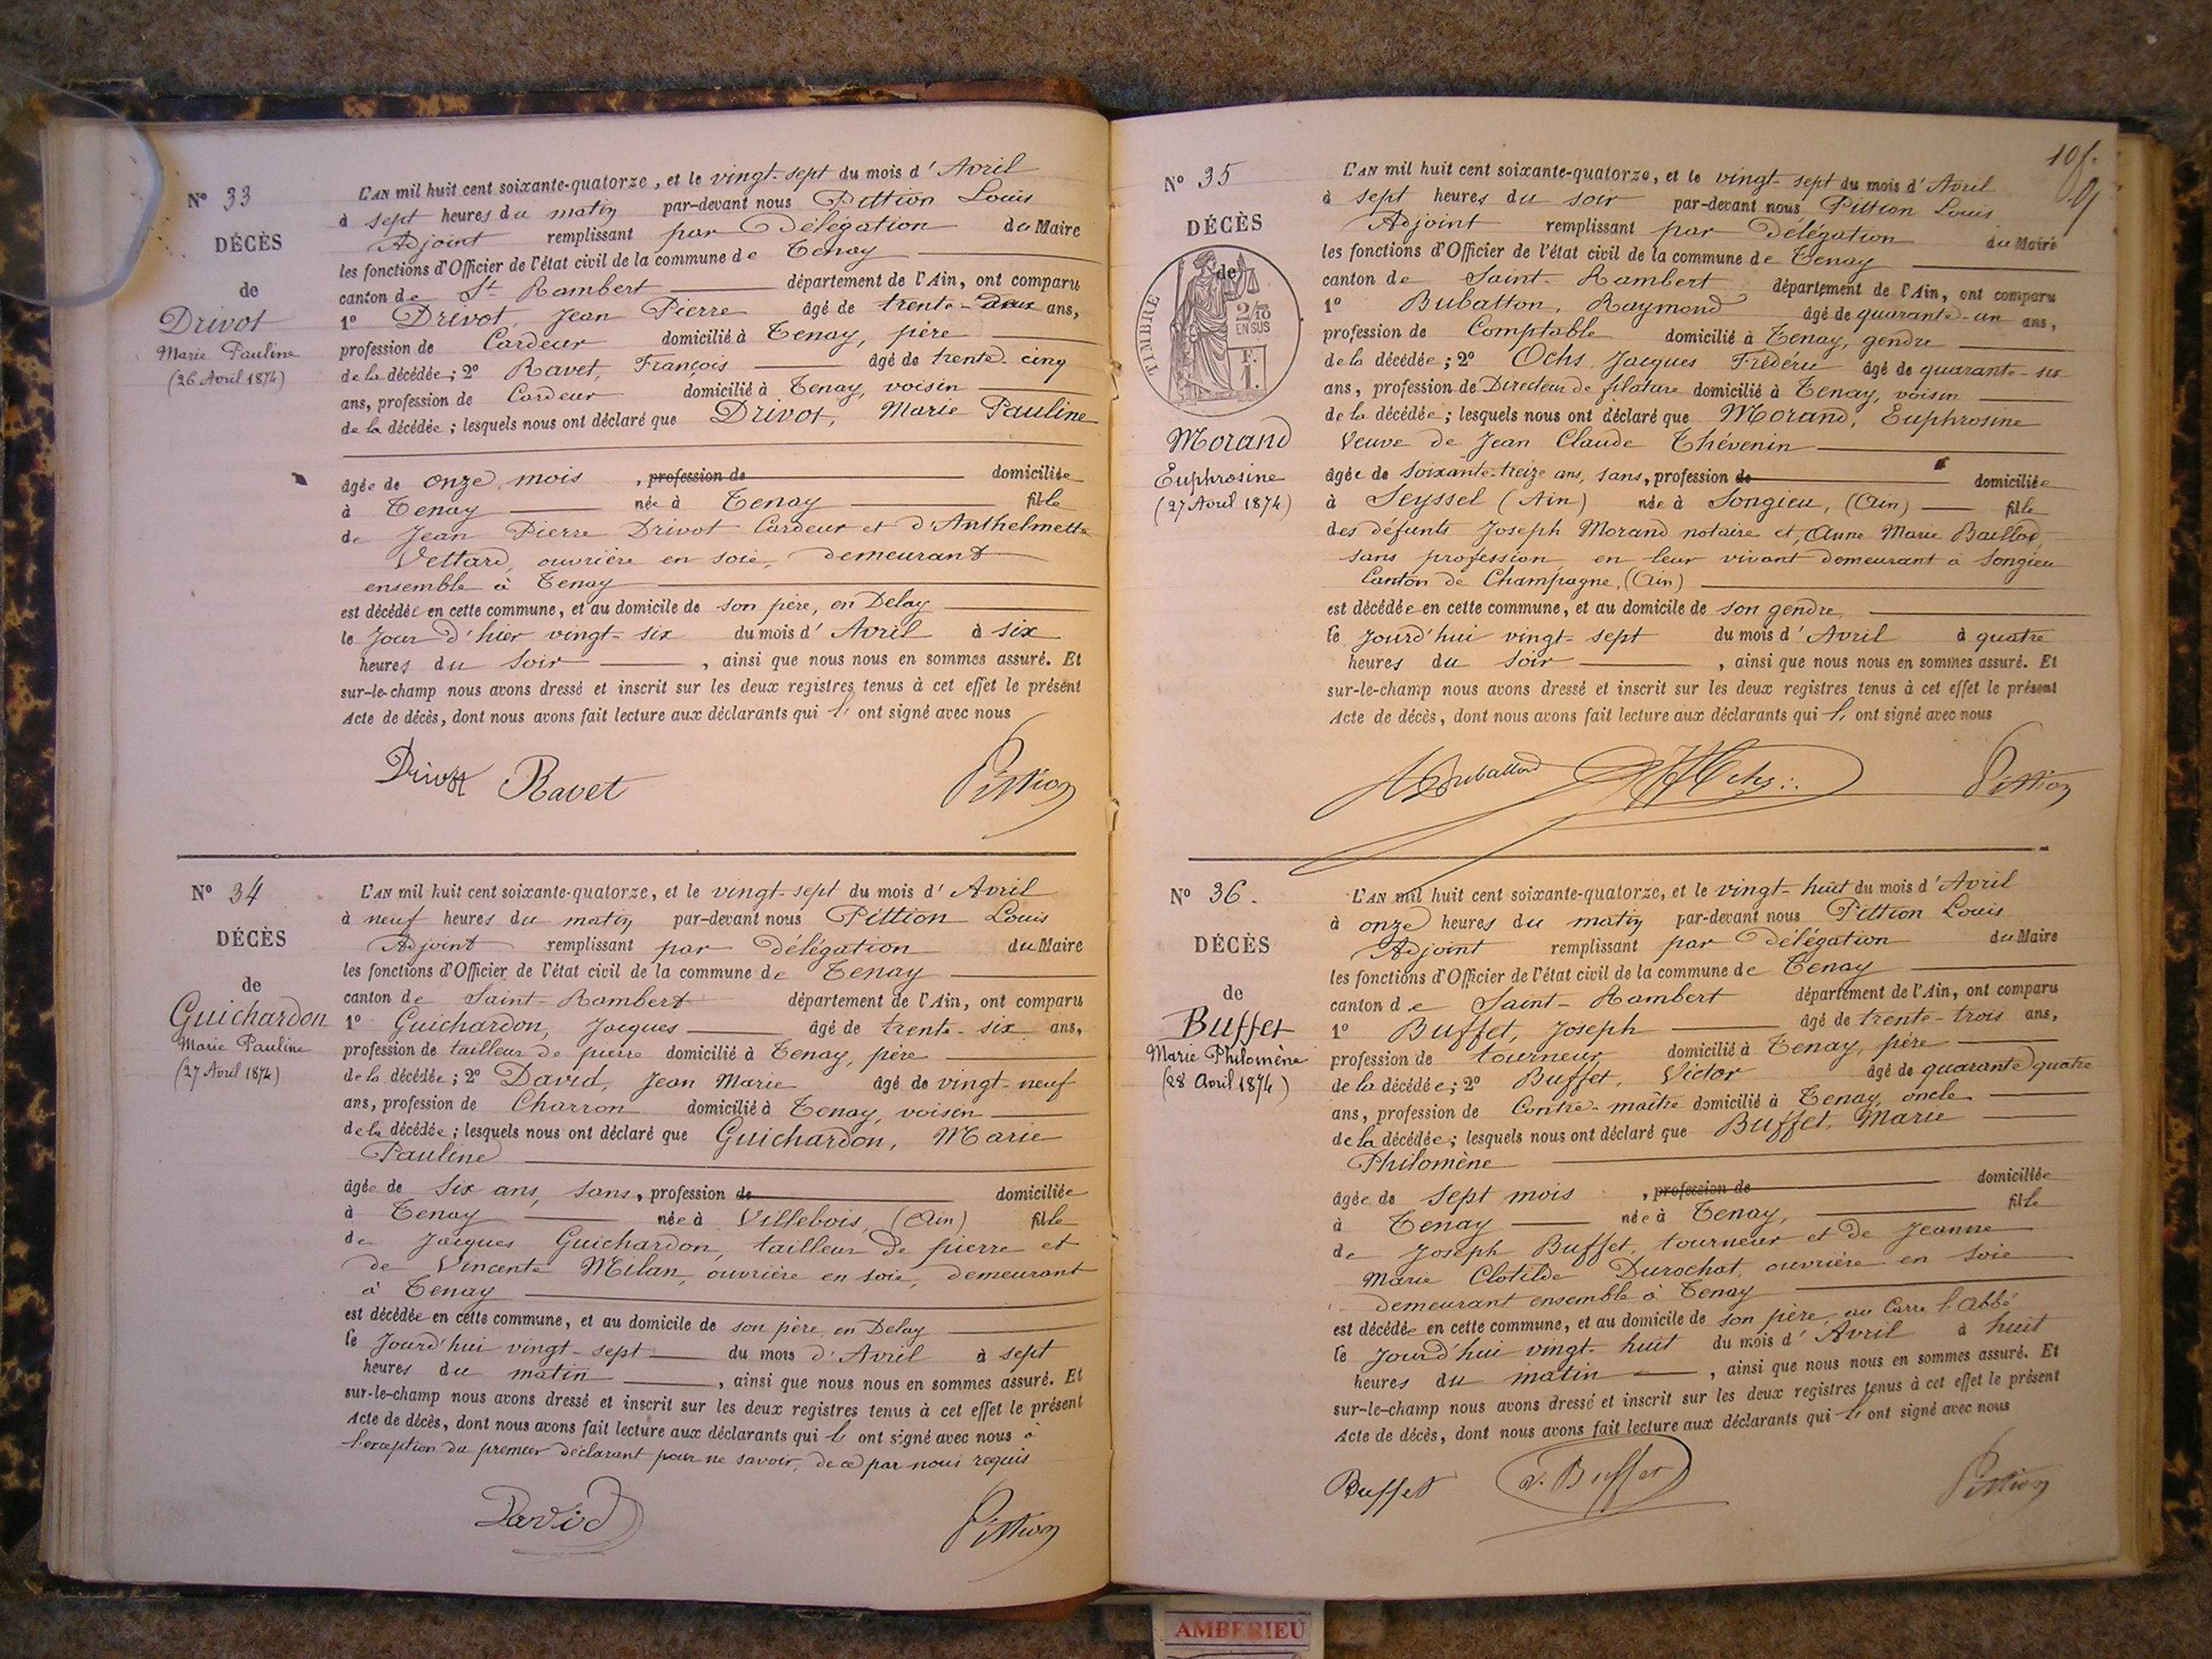 N° 33
DÉCÈS
de
Drivot
Marie Pauline
(26 Avril 1874)
L'AN mil huit cent soixante-quatorze, et le vingt-sept du mois d'Avril
à sept heures du matin par-devant nous Pittion Louis
Adjoint remplissant par Délégation du Maire
les fonctions d'Officier de l'état civil de la commune de Tenay
canton de St Rambert département de l'Ain, ont comparu
1° Drivot, Jean Pierre âgé de trente-deux ans,
profession de Cardeur domicilié à Tenay, père
de la décédée; 2° Ravet, François âgé de trente-cinq
ans, profession de Cardeur domicilié à Tenay, voisin
de la décédée; lesquels nous ont déclaré que Drivot, Marie Pauline
âgée de onze mois, profession de domiciliée
à Tenay née à Tenay fille
de Jean Pierre Drivot Cardeur et d'Anthelmette
Vettard, ouvrière en soie, demeurant
ensemble à Tenay
est décédée en cette commune, et au domicile de son père, en Delay
le Jour d'hier vingt-six du mois d'Avril à six
heures du soir, ainsi que nous nous en sommes assuré. Et
sur-le-champ nous avons dressé et inscrit sur les deux registres tenus à cet effet le présent
Acte de décès, dont nous avons fait lecture aux déclarants qui l' ont signé avec nous
Drivot Ravet Pittion
N° 34
DÉCÈS
de
Guichardon
Marie Pauline
(27 Avril 1874)
L'AN mil huit cent soixante-quatorze, et le vingt-sept du mois d'Avril
à neuf heures du matin par-devant nous Pittion Louis
Adjoint remplissant par Délégation du Maire
les fonctions d'Officier de l'état civil de la commune de Tenay
canton de Saint-Rambert département de l'Ain, ont comparu
1° Guichardon, Jacques âgé de trente-six ans,
profession de tailleur de pierre domicilié à Tenay, père
de la décédée; 2° David, Jean Marie âgé de vingt-neuf
ans, profession de Charron domicilié à Tenay, voisin
de la décédée; lesquels nous ont déclaré que Guichardon, Marie
Pauline
âgée de Six ans, sans, profession de domiciliée
à Tenay née à Villebois, (Ain) fille
de Jacques Guichardon, tailleur de pierre et
de Vincente Milan, ouvrière en soie, demeurant
à Tenay
est décédée en cette commune, et au domicile de son père, en Delay
le Jourd'hui vingt-sept du mois d'Avril à sept
heures du matin, ainsi que nous nous en sommes assuré. Et
sur-le-champ nous avons dressé et inscrit sur les deux registres tenus à cet effet le présent
Acte de décès, dont nous avons fait lecture aux déclarants qui l' ont signé avec nous à
l'exception du premier déclarant pour ne savoir, de ce par nous requis
David Pittion
10 f.
N° 35
DÉCÈS
de
TIMBRE
2/10
EN SUS
F.
1.
Morand
Euphrosine
(27 Avril 1874)
L'AN mil huit cent soixante-quatorze, et le vingt-sept du mois d'Avril
à sept heures du soir par-devant nous Pittion Louis
Adjoint remplissant par Délégation du Maire
les fonctions d'Officier de l'état civil de la commune de Tenay
canton de Saint-Rambert département de l'Ain, ont comparu
1° Bubatton, Raymond âgé de quarante-un ans,
profession de Comptable domicilié à Tenay, gendre
de la décédée; 2° Ochs Jacques Frédéric âgé de quarante-six
ans, profession de Directeur de filature domicilié à Tenay, voisin
de la décédée; lesquels nous ont déclaré que Morand, Euphrosine
Veuve de Jean Claude Thévenin
âgée de soixante-treize ans, sans, profession de domiciliée
à Seyssel (Ain) née à Songieu, (Ain) fille
des défunts Joseph Morand notaire et, Anne Marie Baillod,
sans profession en leur vivant demeurant à Songieu
Canton de Champagne, (Ain)
est décédée en cette commune, et au domicile de son gendre,
le Jourd'hui vingt-sept du mois d'Avril à quatre
heures du soir, ainsi que nous nous en sommes assuré. Et
sur-le-champ nous avons dressé et inscrit sur les deux registres tenus à cet effet le présent
Acte de décès, dont nous avons fait lecture aux déclarants qui l' ont signé avec nous
Ochs Pittion
N° 36.
DÉCÈS
de
Buffet
Marie Philomène
(28 Avril 1874)
L'AN mil huit cent soixante-quatorze, et le vingt-huit du mois d'Avril
à onze heures du matin par-devant nous Pittion Louis
Adjoint remplissant par Délégation du Maire
les fonctions d'Officier de l'état civil de la commune de Tenay
canton de Saint-Rambert département de l'Ain, ont comparu
1° Buffet, Joseph âgé de trente-trois ans,
profession de tourneur domicilié à Tenay, père
de la décédée; 2° Buffet, Victor âgé de quarante quatre
ans, profession de Contre-maître domicilié à Tenay, oncle
de la décédée; lesquels nous ont déclaré que Buffet, Marie
Philomène
âgée de sept mois, profession de domiciliée
à Tenay née à Tenay, fille
de Joseph Buffet, tourneur et de Jeanne
Marie Clotilde Durochat, ouvrière en soie
demeurant ensemble à Tenay
est décédée en cette commune, et au domicile de son père, au Carre l'Abbé
le Jourd'hui vingt-huit du mois d'Avril à huit
heures du matin, ainsi que nous nous en sommes assuré. Et
sur-le-champ nous avons dressé et inscrit sur les deux registres tenus à cet effet le présent
Acte de décès, dont nous avons fait lecture aux déclarants qui l' ont signé avec nous
Buffet V. Buffet Pittion
AMBERIEU